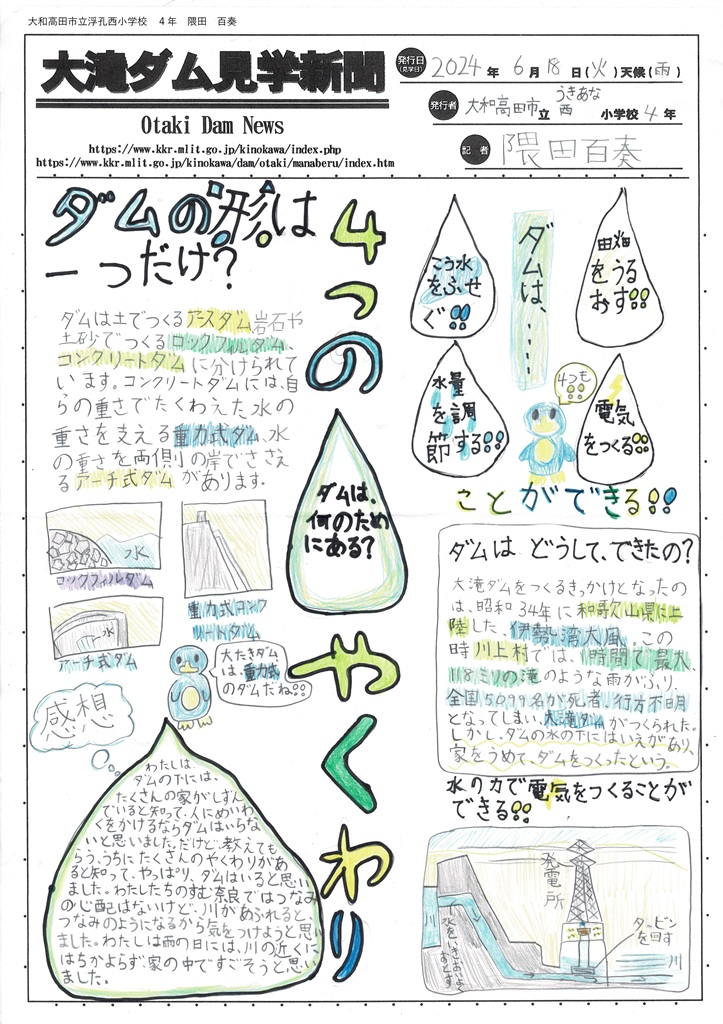 大和高田市立浮孔西小学校　4年　隈田　百奏
大滝ダム見学新聞
Otaki Dam News
https://www.kkr.mlit.go.jp/kinokawa/index.php
https://www.kkr.mlit.go.jp/kinokawa/dam/otaki/manaberu/index.htm
発行日(見学日) 2024年 6月 18日(火) 天候(雨)
うきあな
発行者 大和高田市立 西 小学校 4年
記者 隈田百奏
ダムの形は
一つだけ？
ダムは土でつくるアースダム岩石や
土砂でつくるロックフィルダム、
コンクリートダムに分けられて
います。コンクリートダムには、自
らの重さでたくわえた水の
重さを支える重力式ダム、水
の重さを両側の岸でささえ
るアーチ式ダムがあります。
水
ロックフィルダム
重力式コンク
リートダム
水
アーチ式ダム
大たきダム
は、重力式
のダムだね!!
4つのやくわり
ダムは、
何のため
にある？
ダムは、・・・・・
こう水
をふせ
ぐ!!
田畑
をうる
おす!!
水量
を調
節する!!
電気
をつくる!!
4つも!!
ことができる!!
ダムは どうして、できたの？
大滝ダムをつくるきっかけとなったの
は、昭和34年に和歌山県に上
陸した、伊勢湾大風。この
時川上村では、1時間で最大
118ミリの滝のような雨がふり、
全国5099名が死者、行方不明
となってしまい、大滝ダムがつくられた。
しかし、ダムの水の下にはいえがあり、
家をうめて、ダムをつくったという。
水の力で電気をつくることが
できる!!
発電所
川
水をいきおいよく
おとす
タービン
を回す
川
感想
わたしは、
ダムの下には、
たくさんの家がしずん
でいると知って、人にめいわ
くをかけるならダムはいらな
いと思いました。だけど、教えても
らううちにたくさんのやくわりがあ
ると知って、やっぱり、ダムはいると思い
ました。わたしたちのすむ奈良ではつなみ
の心配はないけど、川があふれると、
つなみのようになるから気をつけようと思い
ました。わたしは雨の日には、川の近くに
はちかよらず、家の中ですごそうと思い
ました。